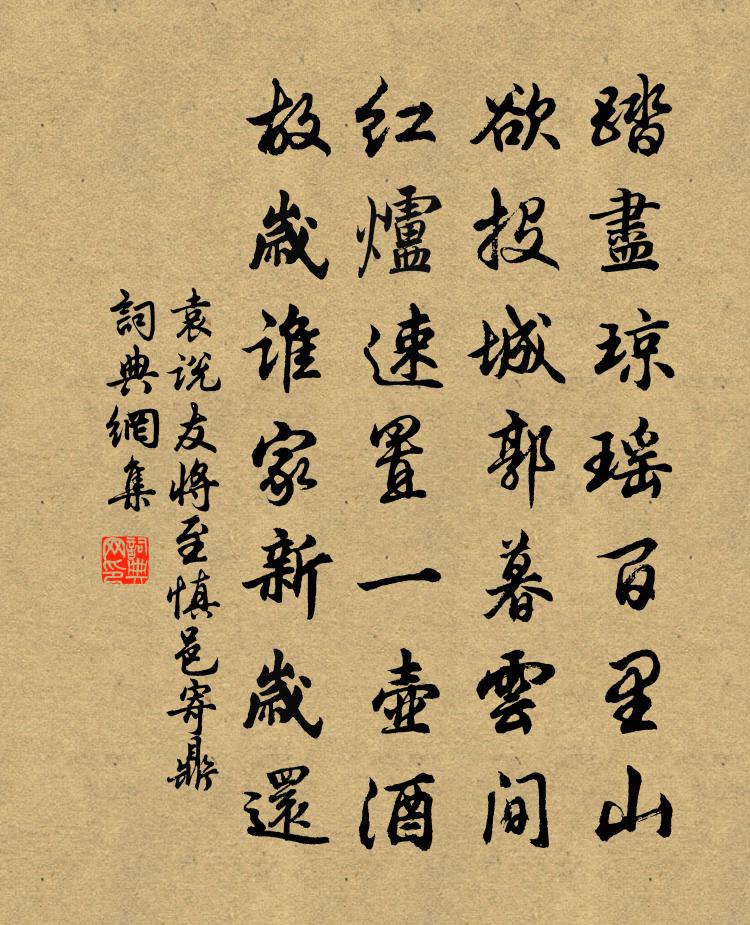 踏盡琼瑶百里山
欲投城郭暮雲間
红爐速置一壺酒
故歲誰家新歲還
袁说友将至慎邑寄鼎
詞典網集
詞典网印